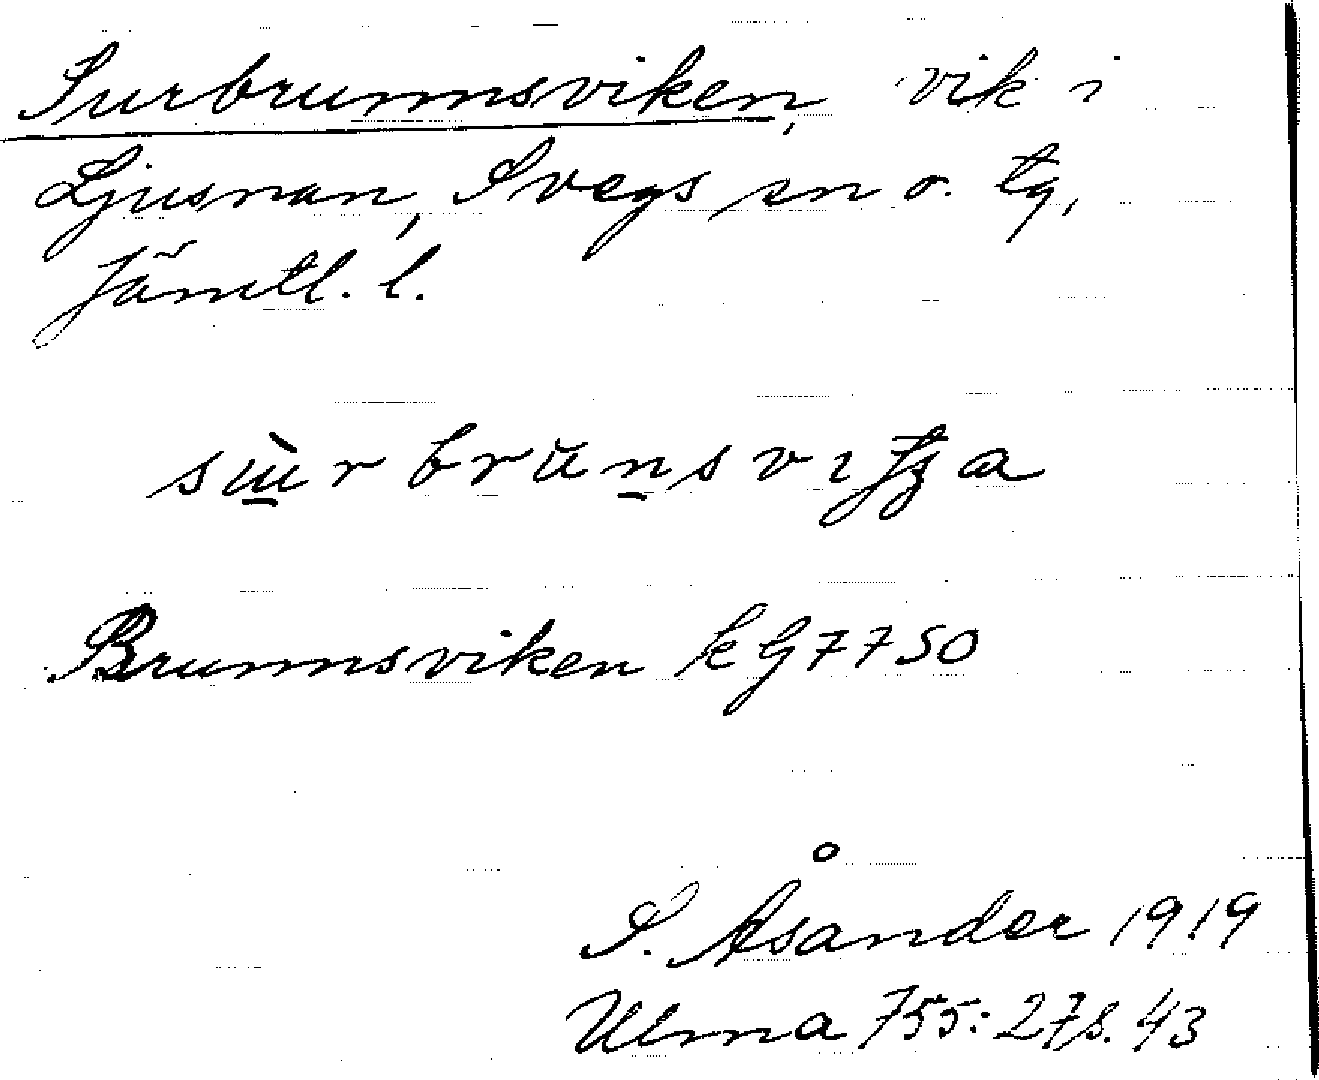 Surbrunnsviken, vik i
Ljusnan, Svegs sn o. tg,
Jämtl. l.
Brunnsviken kG7750
S. Åsander 1919
Ulma 755:27 s. 43